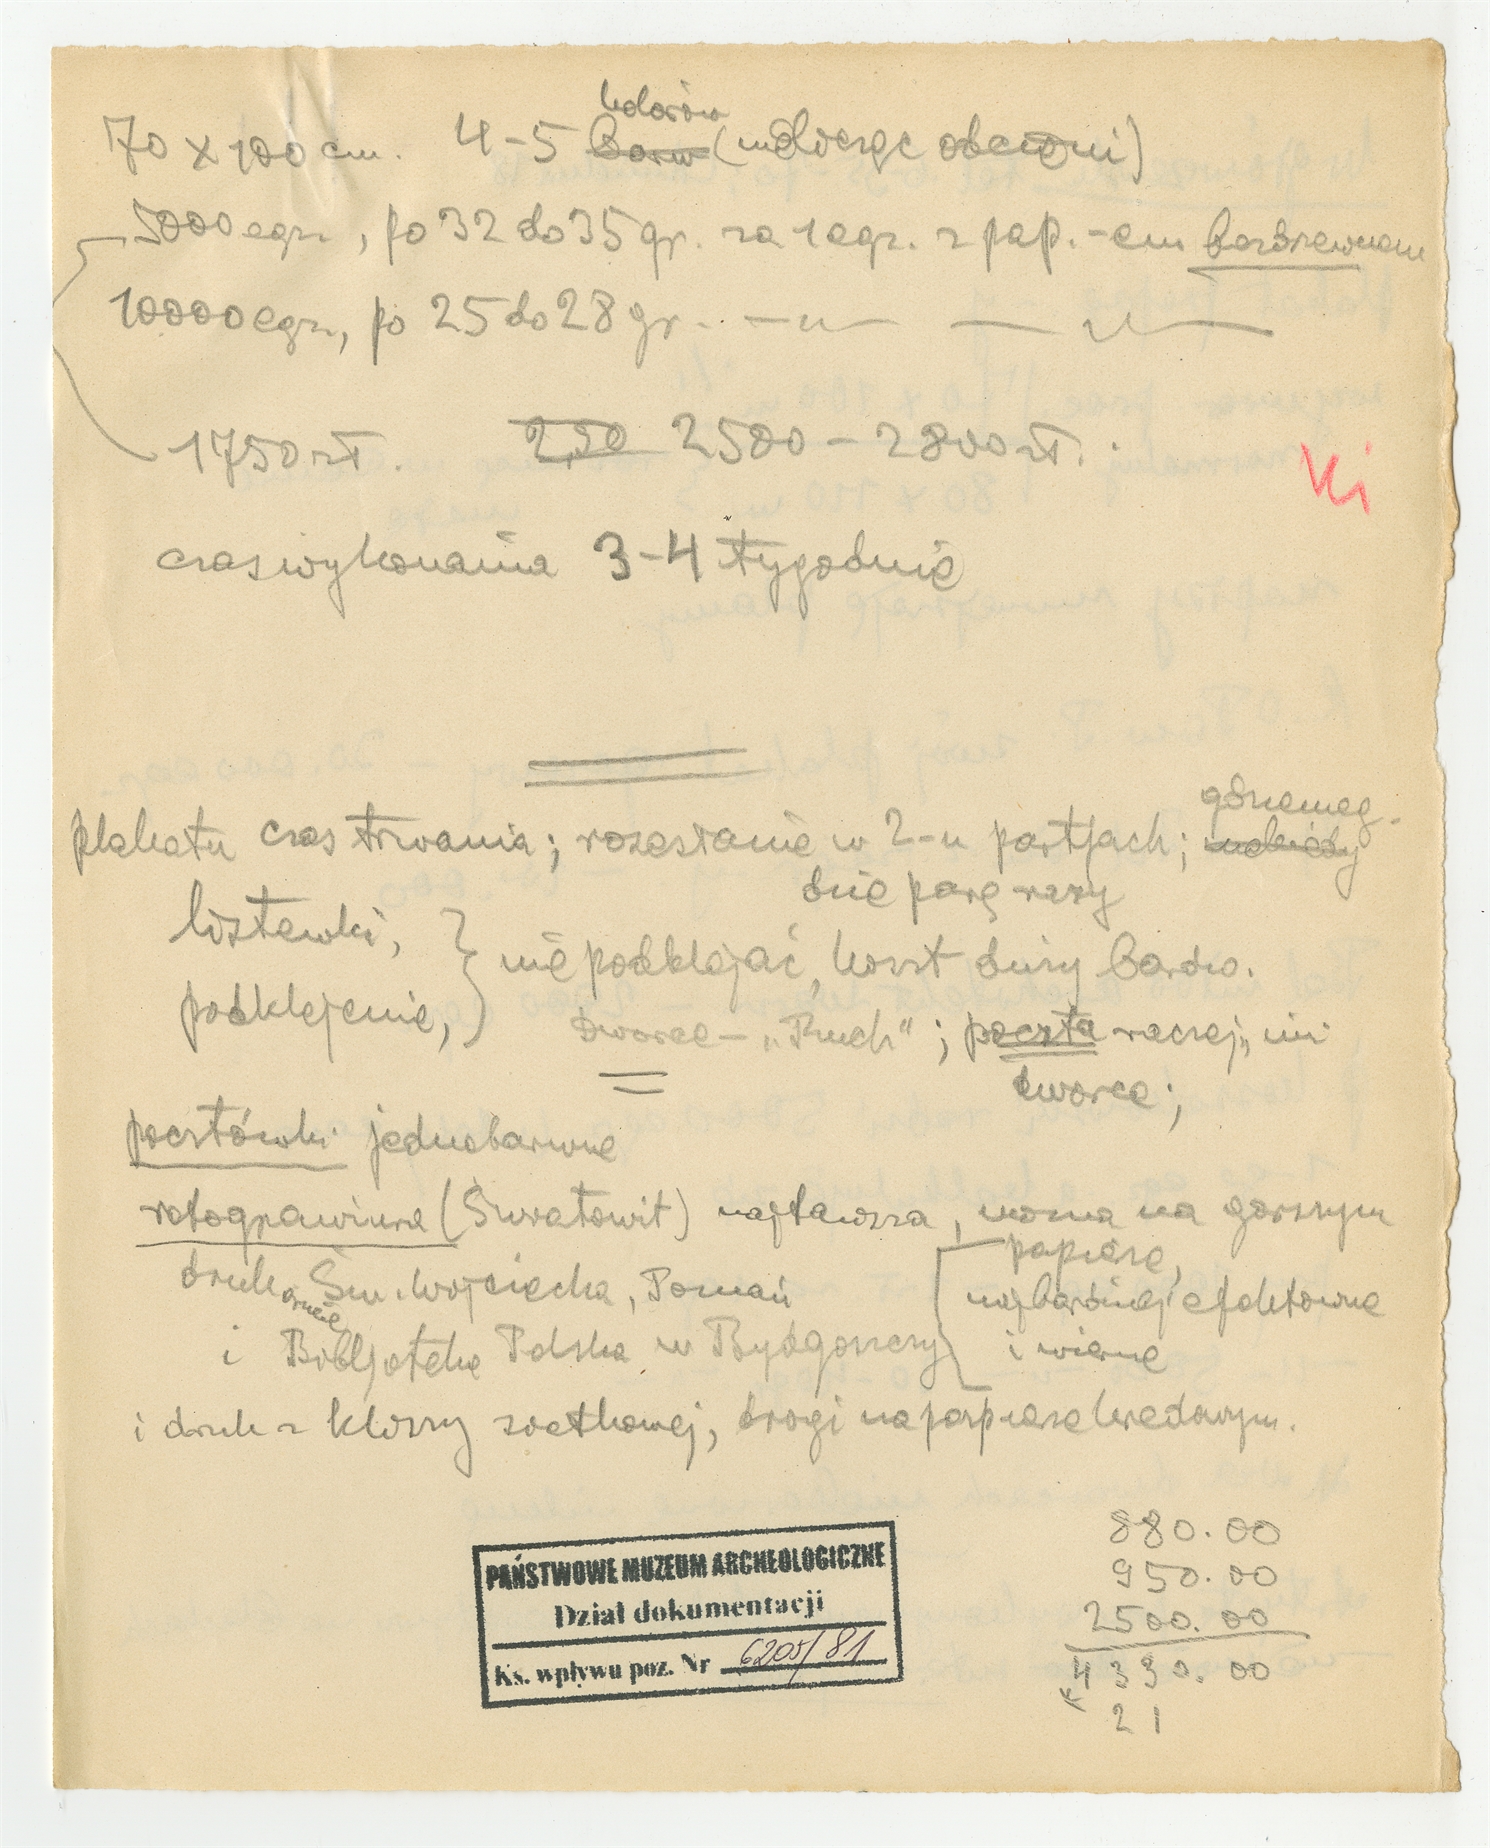 70 x 100 cm. 4-5 kolorów barw (wliczając obecni)
5000 egz., po 32 do 35 gr. za 1 egz. z pap.-em bezdrzewnem
10000 egz., po 25 do 28 gr. —"— —"—
1750 zł. 2,50 2500 - 2800 zł.
Ki
czas wykonania 3-4 tygodnie
plakatu czas trwania; rozesłanie w 2-u partjach;
dnie parę razy
listewki,
nie podklejać, koszt duży bardzo.
podklejenie,
Dworce - „Ruch"; poczta raczej, ni
dworce;
pocztówki jednobarwne
rotograwiura (Światowit) najtańsza, można na gorszym
papierze,
drukarnie Św. Wojciecha, Poznań
najbardziej efektowne
i Bibljoteka Polska w Bydgoszczy
i wierne
i druk z kliszy siatkowej, drogi na papierze kredowym.
880.00
950.00
2500.00
4330.00
21
PAŃSTWOWE MUZEUM ARCHEOLOGICZNE
Dział dokumentacji
Ks. wpływu poz. Nr 6205/81